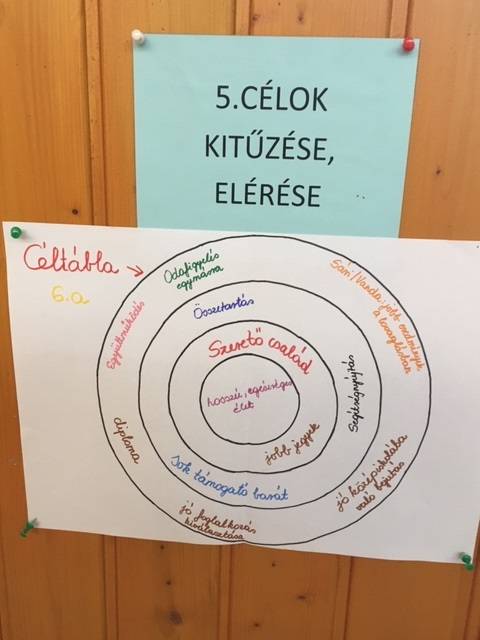 5.CÉLOK
KITŰZÉSE,
ELÉRÉSE
Céltábla
6.a
Odafigyelés
egymásra
Sári/Vanda: jobb eredmények
a lovaglásban
Együttműködés
Összetartás
Szerető család
hosszú, egészséges
élet
Segítségnyújtás
jobb jegyek
diploma
Sok támogató barát
jó középiskolába
való bejutás
jó foglalkozás
kiválasztása